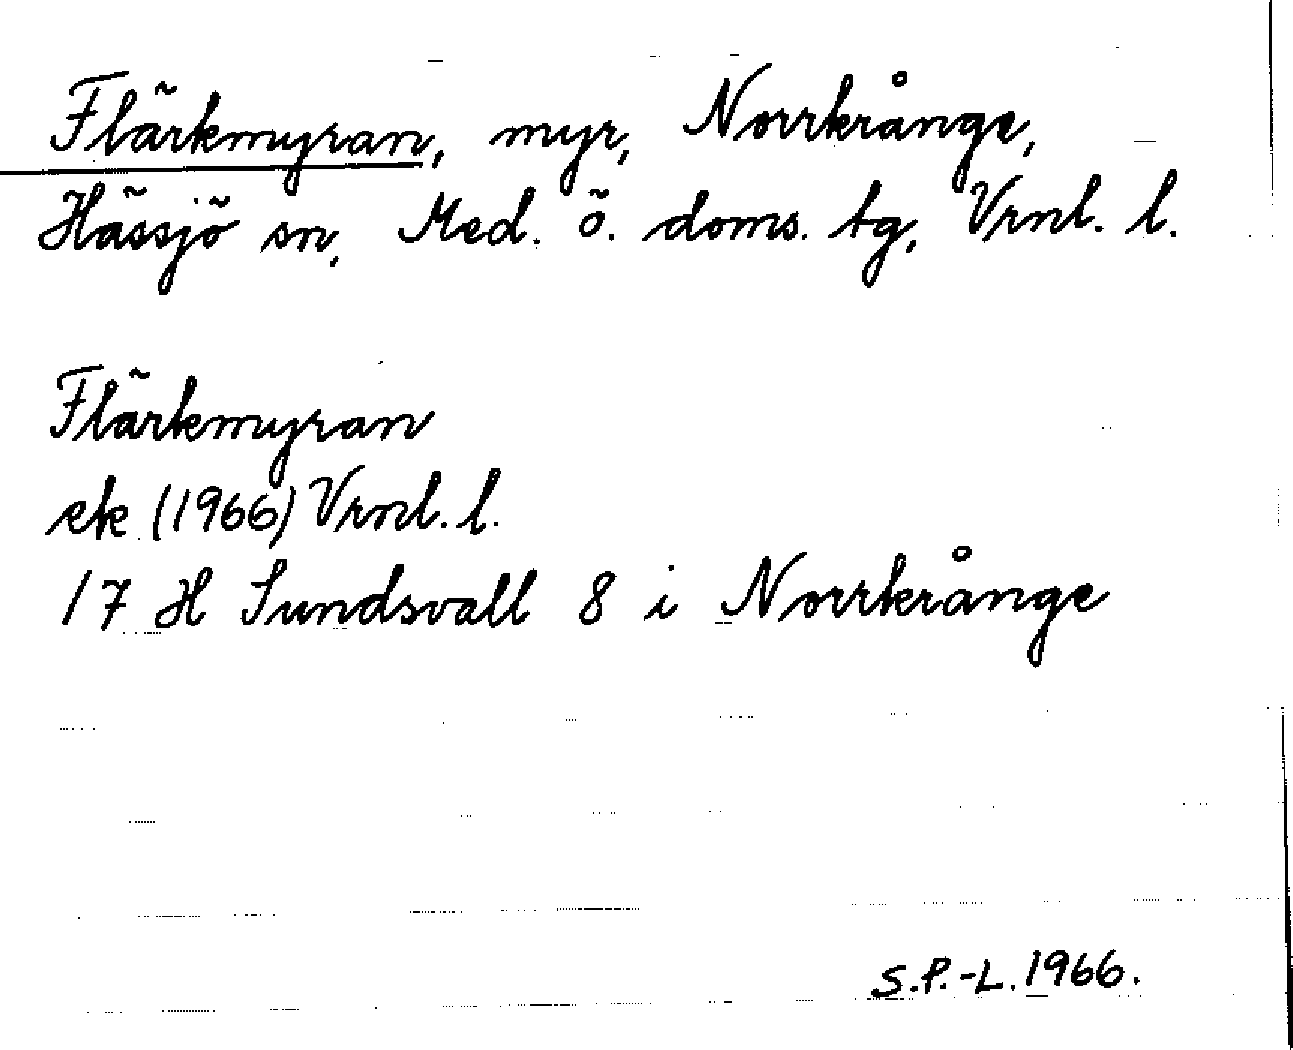 Flärkmyran, myr, Norrkrånge,
Hässjö sn, Med. ö. doms. tg, Vrnl. l.
Flärkmyran
ek (1966) Vrnl. l.
17 H Sundsvall 8 i Norrkrånge
S.P.-L. 1966.